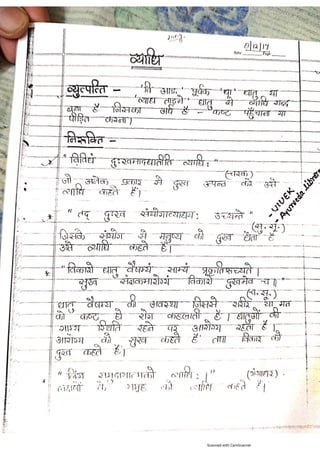 व्याधि
व्युत्पत्ति - 'वि आङ्' पूर्वक 'धा' धातु या
'व्याध ताड़ने' धातु से व्याधि शब्द
बना है जिसका अर्थ है - कष्ट पहुँचाना या
पीड़ित करना।
निरूक्ति -
" विविधं दुःखमादधातीति व्याधि: "
(चरक)
जो अनेक प्रकार से दुख उत्पन्न करे उसे
व्याधि कहते हैं।
" तद् दुःख संयोगाव्याधय: उच्यन्ते "
(सु. सू.)
जिसके संयोग से मनुष्य को दुख होता है
उसे व्याधि कहते हैं।
- VIVEK
- Ayurveda Library
" विकारो धातु वैषम्यं साम्यं प्रकृतिरूच्यते।
सुख संज्ञकमारोग्यं विकारो दुःखमेव च॥
(च. सू.)
धातु वैषम्य की अवस्था जिससे शरीर या मन
को कष्ट हो रोग कहलाती है। धातुओं की
साम्य स्थिति रहने पर आरोग्य रहता है।
आरोग्य को सुख कहते हैं तथा विकार को
दुख कहते हैं।
समुदायात्मको व्याधि:।"
लक्षणों के समूह को व्याधि कहते हैं।
Scanned with CamScanner